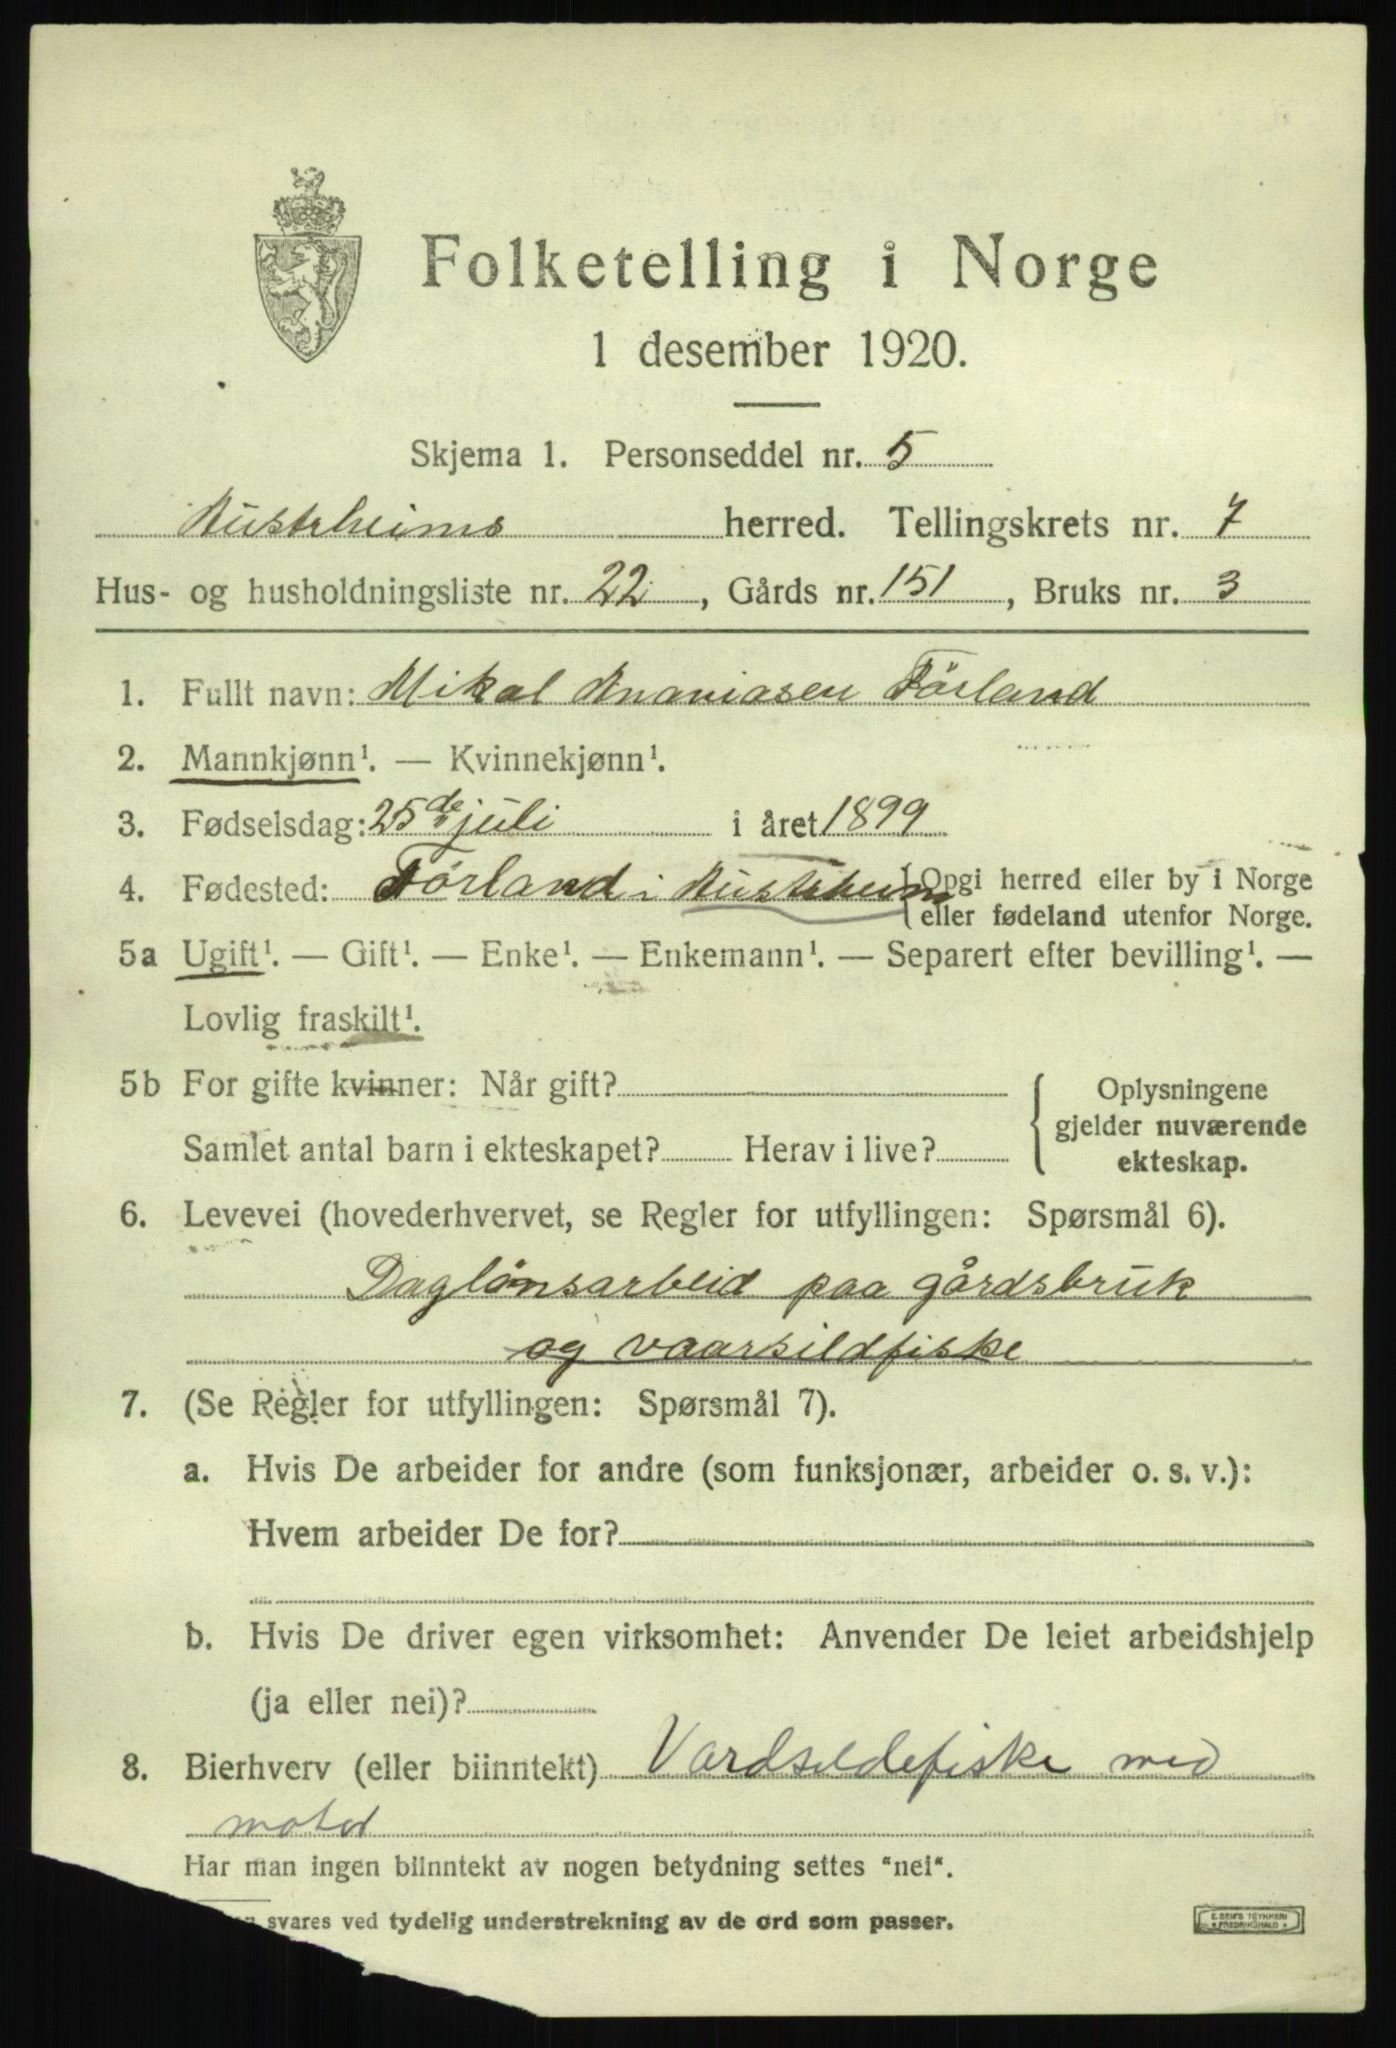 Folketelling i Norge
1 desember 1920.
Skjema 1. Personseddel nr. 5
Austrheims herred. Tellingskrets nr. 7
Hus- og husholdningsliste nr. 22, Gårds nr. 151, Bruks nr. 3
1. Fullt navn: Mikal Ananiasen Förland
2. Mannkjønn¹. — Kvinnekjønn¹.
3. Fødselsdag: 25de juli i året 1899
4. Fødested: Förland i Austrheim { Opgi herred eller by i Norge
eller fødeland utenfor Norge.
5a Ugift¹. — Gift¹. — Enke¹. — Enkemann¹. — Separert efter bevilling¹. —
Lovlig fraskilt¹.
5b For gifte kvinner: Når gift? { Oplysningene
gjelder nuværende
Samlet antal barn i ekteskapet? Herav i live? ekteskap.
6. Levevei (hovederhvervet, se Regler for utfyllingen: Spørsmål 6).
Daglönsarbeid paa gårdsbruk
og vaarsildfiske
7. (Se Regler for utfyllingen: Spørsmål 7).
a. Hvis De arbeider for andre (som funksjonær, arbeider o. s. v.):
Hvem arbeider De for?
b. Hvis De driver egen virksomhet: Anvender De leiet arbeidshjelp
(ja eller nei)?
8. Bierhverv (eller biinntekt) Vardsildefiske med
motor
Har man ingen biinntekt av nogen betydning settes "nei".
svares ved tydelig understrekning av de ord som passer.
E. SEM'S TRYKKERI
FREDRIKSHALD